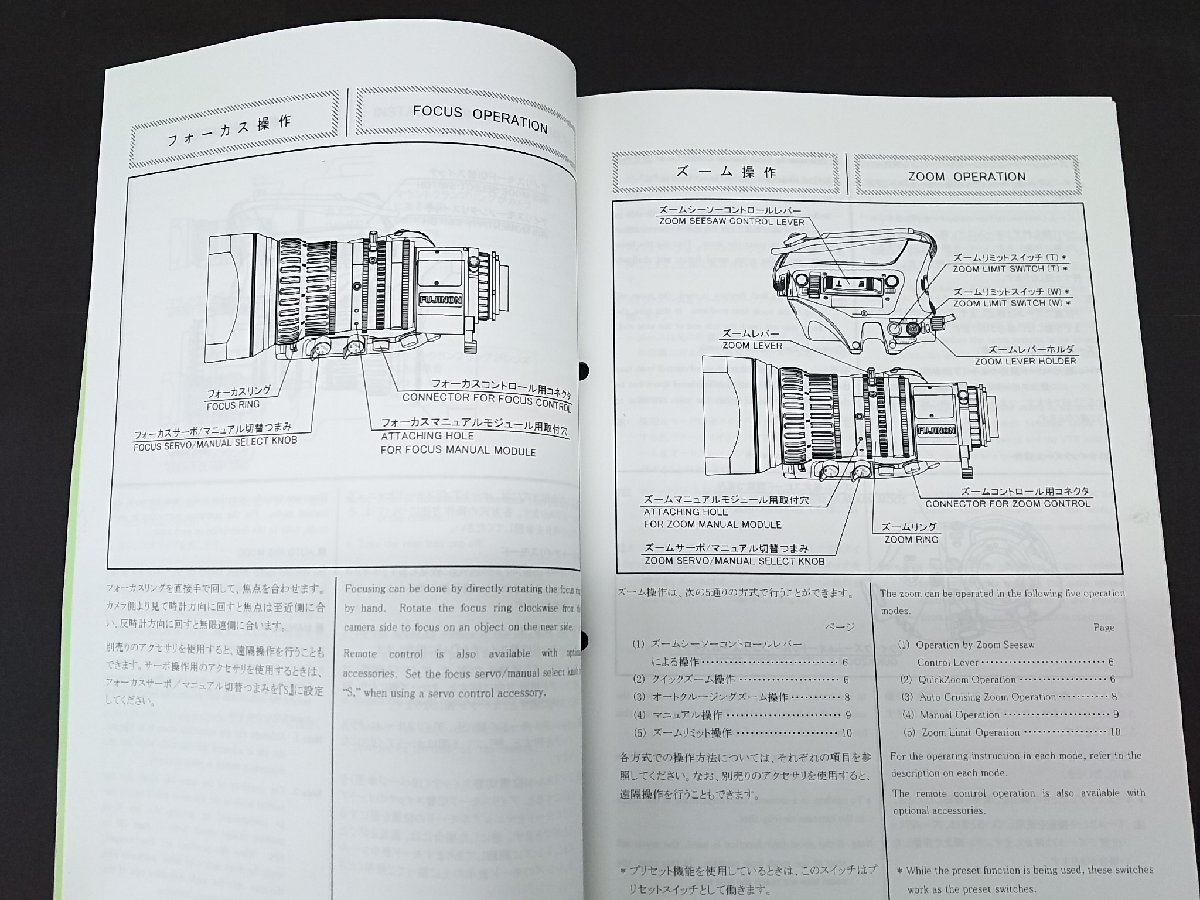 フォーカス操作
FOCUS OPERATION
FUJINON
フォーカスリング
FOCUS RING
フォーカスサーボ/マニュアル切替つまみ
FOCUS SERVO/MANUAL SELECT KNOB
フォーカスコントロール用コネクタ
CONNECTOR FOR FOCUS CONTROL
フォーカスマニュアルモジュール用取付穴
ATTACHING HOLE
FOR FOCUS MANUAL MODULE
フォーカスリングを直接手で回して、焦点を合わせます。
カメラ側より見て時計方向に回すと焦点は至近側に合
い、反時計方向に回すと無限遠側に合います。
別売りのアクセサリを使用すると、遠隔操作を行うことも
できます。サーボ操作用のアクセサリを使用するときは、
フォーカスサーボ/マニュアル切替つまみを『S』に設定
してください。
Focusing can be done by directly rotating the focus
by hand. Rotate the focus ring clockwise from the
camera side to focus on an object on the near side.
Remote control is also available with
accessories. Set the focus servo/manual select
"S," when using a servo control accessory.
ズーム操作
ZOOM OPERATION
ズームシーソーコントロールレバー
ZOOM SEESAW CONTROL LEVER
ズームリミットスイッチ(T)*
ZOOM LIMIT SWITCH(T)*
ズームリミットスイッチ(W)*
ZOOM LIMIT SWITCH(W)*
ズームレバー
ZOOM LEVER
ズームレバーホルダ
ZOOM LEVER HOLDER
FUJINON
ズームマニュアルモジュール用取付穴
ATTACHING HOLE
FOR ZOOM MANUAL MODULE
ズームコントロール用コネクタ
CONNECTOR FOR ZOOM CONTROL
ズームリング
ZOOM RING
ズームサーボ/マニュアル切替つまみ
ZOOM SERVO/MANUAL SELECT KNOB
ズーム操作は、次の5通りの方式で行うことができます。
ページ
(1) ズームシーソーコントロールレバー
による操作 ‥‥‥‥‥‥‥‥ 6
(2) クイックズーム操作 ‥‥‥‥‥‥ 6
(3) オートクルージングズーム操作 ‥‥‥ 8
(4) マニュアル操作 ‥‥‥‥‥‥‥ 9
(5) ズームリミット操作 ‥‥‥‥‥‥ 10
各方式での操作方法については、それぞれの項目を参
照してください。なお、別売りのアクセサリを使用すると、
遠隔操作を行うこともできます。
* プリセット機能を使用しているときは、このスイッチはプ
リセットスイッチとして働きます。
The zoom can be operated in the following five operation
modes.
Page
(1) Operation by Zoom Seesaw
Control Lever ‥‥‥‥‥‥‥‥ 6
(2) QuickZoom Operation ‥‥‥‥‥‥ 6
(3) Auto Cruising Zoom Operation ‥‥‥ 8
(4) Manual Operation ‥‥‥‥‥‥‥ 9
(5) Zoom Limit Operation ‥‥‥‥‥‥ 10
For the operating instruction in each mode, refer to the
description on each mode.
The remote control operation is also available with
optional accessories.
* While the preset function is being used, these switches
work as the preset switches.